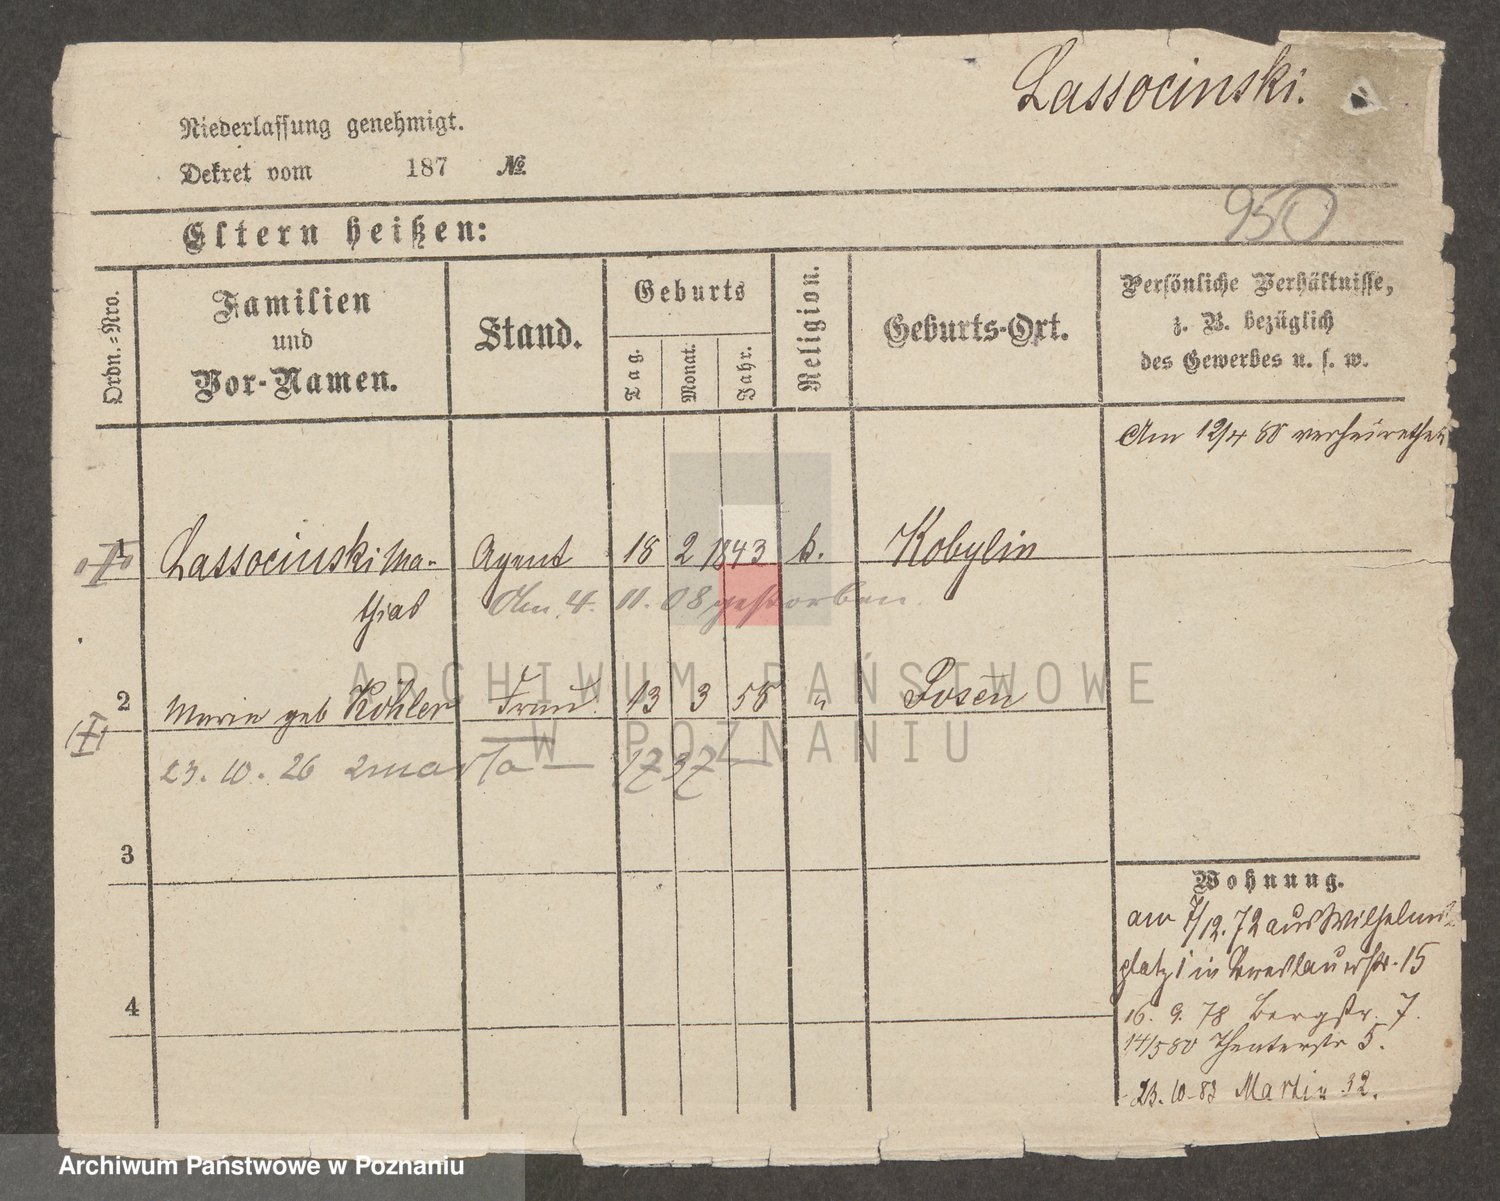 Lassocinski.
Niederlassung genehmigt.
Dekret vom 187 №
950
Eltern heißen:
Ordn.=Nro.
Familien
und
Vor-Namen.
Stand.
Geburts
Tag.
Monat.
Jahr.
Religion.
Geburts-Ort.
Persönliche Verhältnisse,
z. B. bezüglich
des Gewerbes u. s. w.
Am 12/4 80 verheirathet
1 Lassocinski Ma- Agent 18 2 1843 k. Kobylin
thias Am 4. 11. 08 gestorben.
2 Marie geb Köhler Frau 13 3 58 " Posen
23. 10. 26 zmarła — 1737 —
3
4
Wohnung.
am 7/12. 72 aus Wilhelms
platz 1 in Breslauerstr. 15
16. 9. 78 Bergstr. 7.
14/5 80 Theaterstr 5.
23. 10. 83 Martin 32.
ARCHIWUM PAŃSTWOWE
W POZNANIU
Archiwum Państwowe w Poznaniu